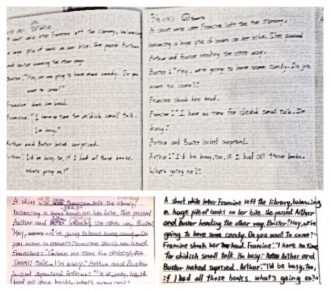 A short while later Francine left the library, balancing
a huge pile of books on her bike. She passed
Arthur and Buster heading the other way.
Buster: "Hey, we are going to have some candy. Do you
want to come?"
Francine shook her head.
Francine: "I have no time for childish small talk.
I'm busy."
Arthur and Buster looked surprised.
Arthur: "I'd be busy, too, if I had all those books.
What's going on?"
A short while later Francine left the library,
balancing a huge pile of books on her bike. She passed
Arthur and Buster heading the other way.
Buster: "Hey, we're going to have some candy. Do you
want to come?"
Francine shook her head.
Francine: "I have no time for childish small talk. I'm
busy."
Arthur and Buster looked surprised.
Arthur: "I'd be busy, too, if I had all those books.
What's going on?"
A short while Francine left the library,
balancing a huge books on her bike. She passed
Arthur and Buster the other way. Buster:
Hey, we're going to have some candy. Do
you want to come? Francine shook her head.
Francine: I have no time for childish
small talk. I'm busy. Arthur and Buster
looked surprised. Arthur: "I'd be busy, too, if
I had all those books. what's going on?"
A short while later Francine left the library, balancing
a huge pile of books on her bike. She passed Arthur
and Buster heading the other way. Buster: "Hey, we're
going to have some candy. Do you want to come?"
Francine shook her head. Francine: "I have no time
for childish small talk. I'm busy." Arthur and
Buster looked surprised. Arthur: "I'd be busy, too,
if I had all these books. What's going on?"